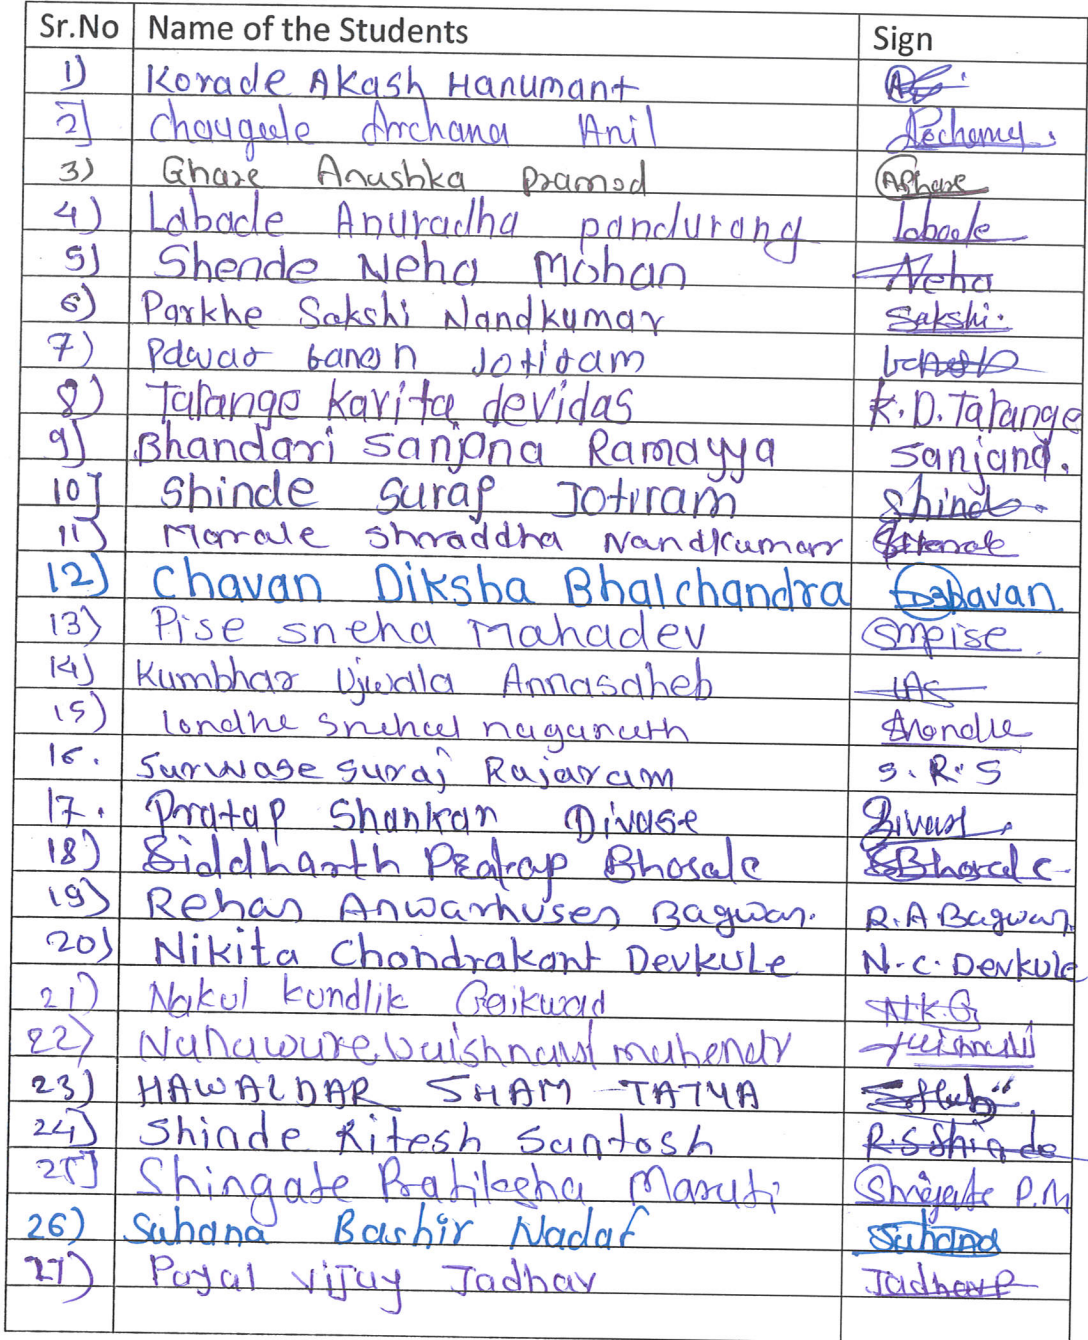 Sr.No Name of the Students Sign
1) Korade Akash Hanumant
2] Chougule Archana Anil
3) Ghare Anushka pramod AGhare
4) Labade Anuradha pandurang labade
5) Shende Neha Mohan Neha
6) Parkhe Sakshi Nandkumar Sakshi.
7) Pawar Jotiram
8) Talange Kavita devidas K.D.Talange
9] Bhandari Sanjana Ramayya Sanjana.
10] Shinde Suraj Jotiram Shinde
11) Morale Shraddha Nandkumar
12) Chavan Diksha Bhalchandra Dchavan
13) Pise sneha Mahadev smpise
14) Kumbhar Ujwala Annasaheb
15) londhe snehal naganath
16. Surwase suraj Rajaram S.R.S
17. Pratap Shankar Divase Divase
18) Siddharth Pratap Bhosale SBhosale
19) Rehan Anwarhusen Bagwan. R.A Bagwan
20) Nikita Chandrakant Devkule N.C.Devkule
21) Nakul kundlik Gaikwad N.K.G
22) Nanaware vaishnavi mahendr
23) HAWALDAR SHAM TATYA
24) Shinde Ritesh Santosh R.S Shinde
25] Shingate Pratiksha Maruti Shingate P.M
26) Suhana Bashir Nadaf Suhana
27) Payal vijay Jadhav Jadhav P